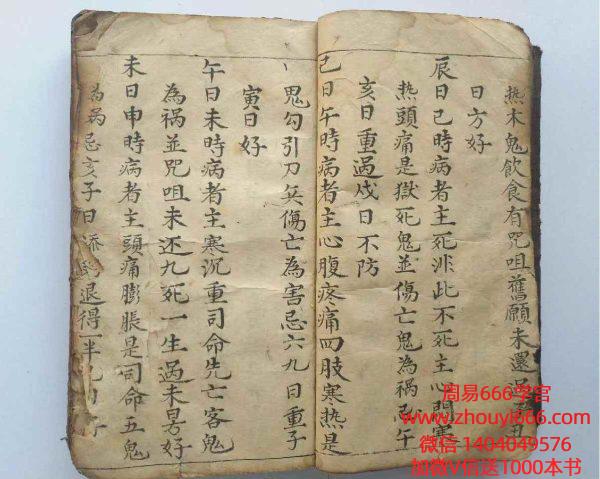 热木鬼飲食有咒咀舊願未還过
日方好
辰日己時病者主死非此不死主心
热頭痛是獄死鬼並傷亡鬼為禍忌午
亥日重過戌日不防
己日午時病者主心腹疼痛四肢寒热是
鬼勾引刀兵傷亡為害忌六九日重子
寅日好
午日未時病者主寒沉重司命先亡客鬼
為禍並咒咀未还九死一生過未日方好
未日申時病者主頭痛膨脹是司命五鬼
為祸忌亥子日 退得一半
周易666学宫
www.zhouyi666.com
微信 1404049576
加微V信送T000本书